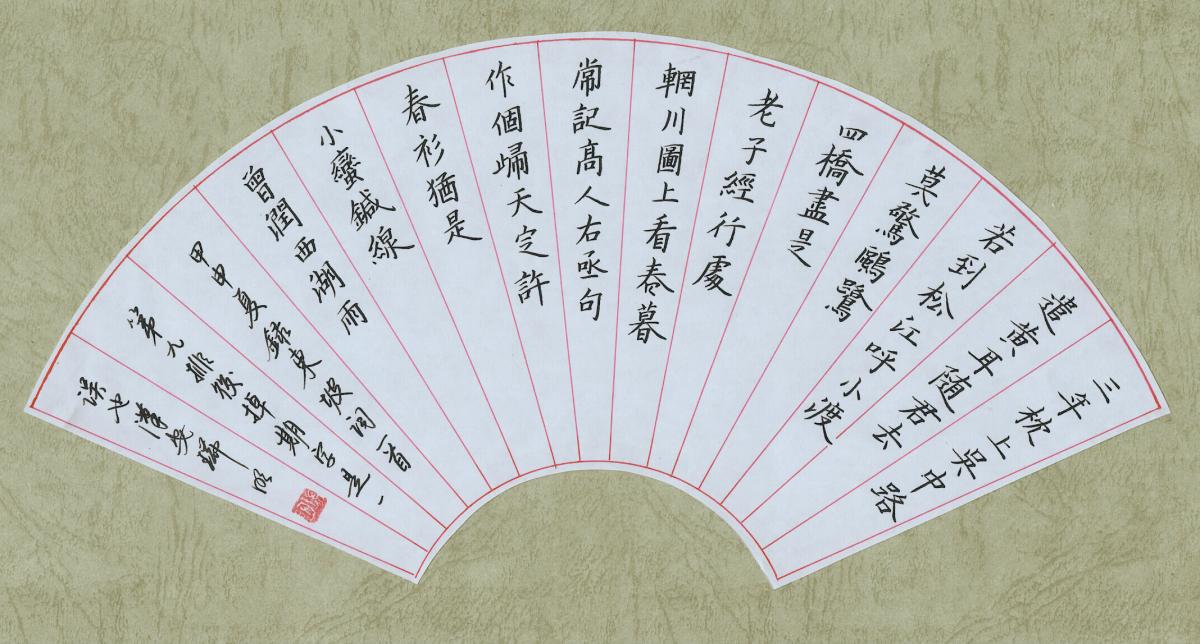 三年枕上吳中路
遣黄耳随君去
若到松江呼小渡
莫驚鷗鷺
四橋盡是
老子經行處
輞川圖上看春暮
常記高人右丞句
作個歸天定許
春衫猶是
小蠻鍼線
曾潤西湖雨
甲申夏録東坡詞一首
第九排後掉期字是
误也